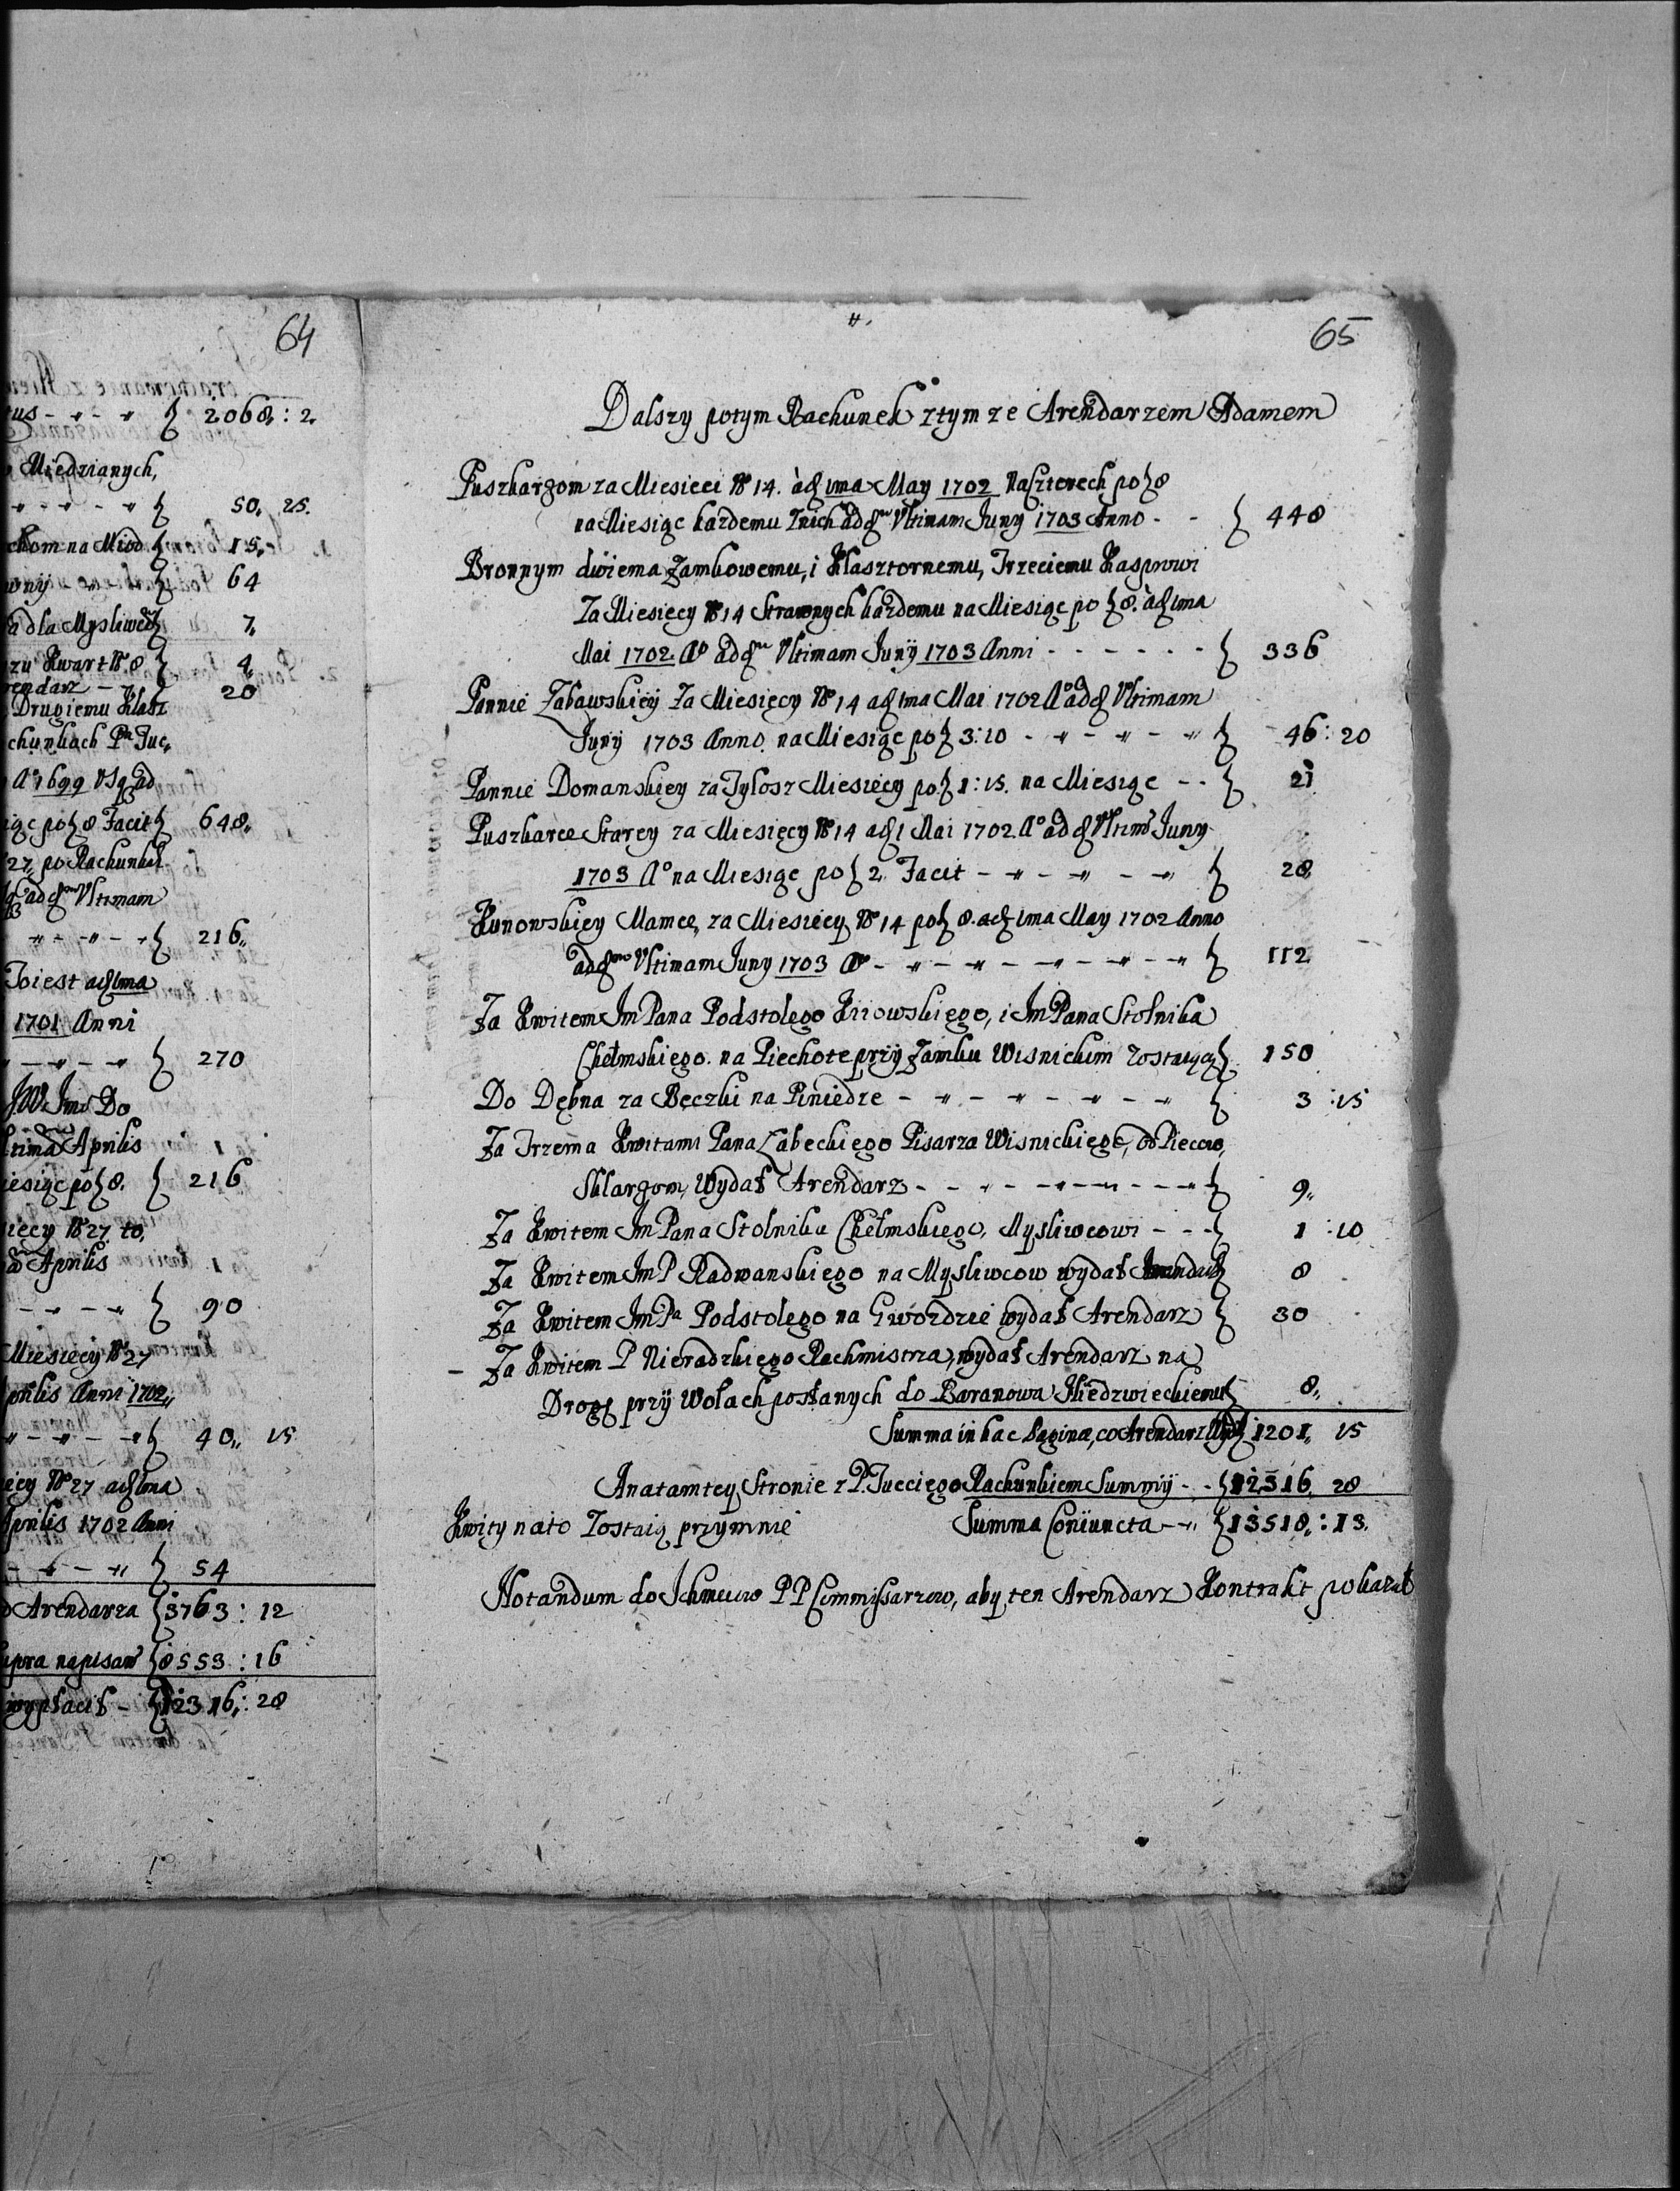 64
tus - - - } 2068,: 2.
Miedzianych,
- - - } 50, 25.
chom na Miod } 15,
} 64
a dla Mysliwcz } 7,
Kwart No 8 } 4,
rendarz - } 20
Drugiemu Klasz
chunkach Pa Juc,
Ao 1699 Usq ad
po } 8 Facit } 648,
27, po Rachunku
ad Ultimam
} 216,,
To iest ad 1ma
1701 Anni
} 270
Do
ltima Aprilis
iesiąc po } 8. } 216
iecy No 27. to,
Aprilis
} 90
Miesięcy No 27
prilis Anni 1702,,
} 40,, 15
ięcy No 27 1ma
Aprilis 1702 Anni
} 54
Arendarza { 3763 : 12
supra napisaw { 8553 : 16
wypłacił - { 12316,: 28
65
Dalszy potym Rachunek z tym ze Arendarzem Adamem
Puszkarzom za Miesięci No 14. à 1ma May 1702 Na Czterech po } 8
na Miesiąc kazdemu Znich ad Ultimam Juny 1703 Anno - - } 448
Bronnym dwiema Zamkowemu, i Klasztornemu, Trzeciemu Kasprowi
Za Miesięcy No 14 Strawnych kazdemu na Miesiąc po } 8. à 1ma
Mai 1702. Ao ad Ultimam Juny 1703 Anni - - - - - - } 336
Pannie Zabawskiey Za Miesięcy No 14 a 1ma Mai 1702 Ao ad Ultimam
Juny 1703 Anno. na Miesiąc po } 3:10 - - - - - } 46 : 20
Pannie Domanskiey za Tylosz Miesięcy po } 1:15. na Miesiąc - - } 21
Puszkarce Starey za Miesięcy No 14 a 1 Mai 1702 Ao ad Ultimo Juny
1703 Ao na Miesiąc po } 2. Facit - - - - } 28,
Kunowskiey Mamce, za Miesięcy No 14 po } 8. a 1ma May 1702 Anno
ad Ultimam Juny 1703 Ao - - - - - - } 112
Za Kwitem Jm Pana Podstolego Kiiowskiego, i Jm Pana Stolnika
Chełmskiego. na Piechotę przy Zamku Wisnickim Zostaiącą } 150
Do Dębna za Beczki na Piniedze - - - - - - } 3 :15
Za Trzema Kwitami Pana Zabeckiego Pisarza Wisnickiego, od Piecow,
Sklarzom, Wydał Arendarz - - - - - - } 9,,
Za Kwitem Jm Pana Stolnika Chełmskiego, Mysliwcowi - - - } 1 :10
Za Kwitem Jm P Radwanskiego na Mysliwcow wydał Arendarz } 8
Za Kwitem Jm Pa Podstolego na Gwozdzie wydał Arendarz } 30
- Za Kwitem P Nieradzkiego Rachmistrza, wydał Arendarz na
Drogę przy Wołach posłanych do Baranowa Niedzwieckiemu } 8,,
Summa in hac Pagina, co Arendarz Wydał } 1201,, 15
A na tamtey Stronie z P. Jucciego Rachunkiem Summy - - { 12316, 28
Kwity na to Zostaią przymnie Summa Coniuncta - - { 13518,: 13.
Notandum do Ichmciow PP Commissarzow, aby ten Arendarz Kontrakt pokazał